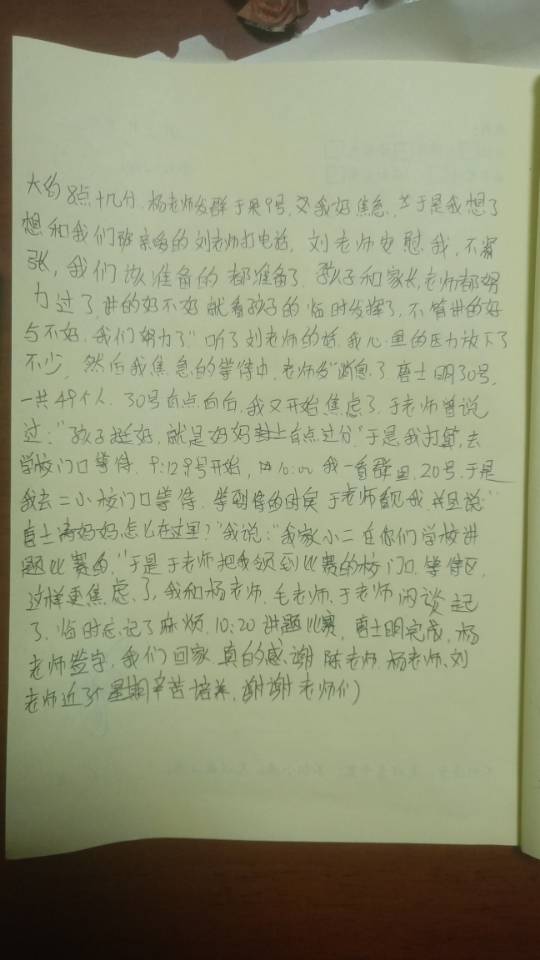 大约8点十几分、杨老师发群于是9号,又我好焦急,于是我想了
想和我们班亲爱的刘老师打电话,刘老师安慰我,不紧
张,我们该准备的都准备了,孩子和家长,老师都努
力过了,讲的好不好就看孩子的临时发挥了,不管讲的好
与不好,我们努力了"听了刘老师的话,我心里的压力放下了
不少,然后我焦急的等待中,老师发"消息了 明30号,
一共49个人,30号有点向后,我又开始焦虑了,于老师曾说
过:"孩子挺好,就是妈妈有点过分"于是我打算,去
学校门口等待,9:12 9号开始,10:00我一看群里,20号,于是
我去二小校门口等待,等到待的时候于老师看见我,并且说:"
妈妈怎么在这里?"我说:"我家小二在你们学校讲
题比赛的"于是于老师把我领到比赛的校门口,等待区,
这样更焦虑了,我和杨老师,毛老师,于老师闲谈起
了,临时忘记了麻烦,10:20讲题比赛,明完成,杨
老师签字,我们回家,真的感谢陈老师,杨老师、刘
老师近3个星期辛苦培养,谢谢老师们)